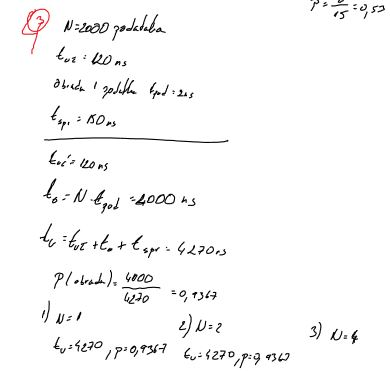 p = 8/15 = 0,53
3 N=2000 podataka
tuč = 120 ns
Obrada 1 podatka tpod = 2ns
tspr = 150ns
tuč = 120 ns
to = N · tpod = 4000 ns
tu = tuč + to + tspr = 4270ns
P(obrada) = 4000/4270 = 0,9367
1) N=1 2) N=2 3) N=4
tu=4270, p=0,9367 tu=4270, p=0,9367